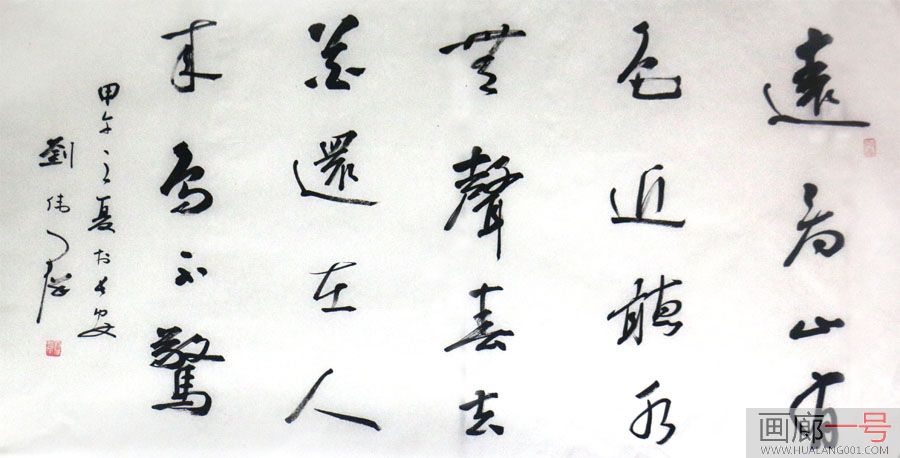 遠看山有
色近聽水
無聲春去
花還在人
来鳥不驚
甲午之夏於長安
劉偉
画廊一号
WWW.HUALANG001.COM